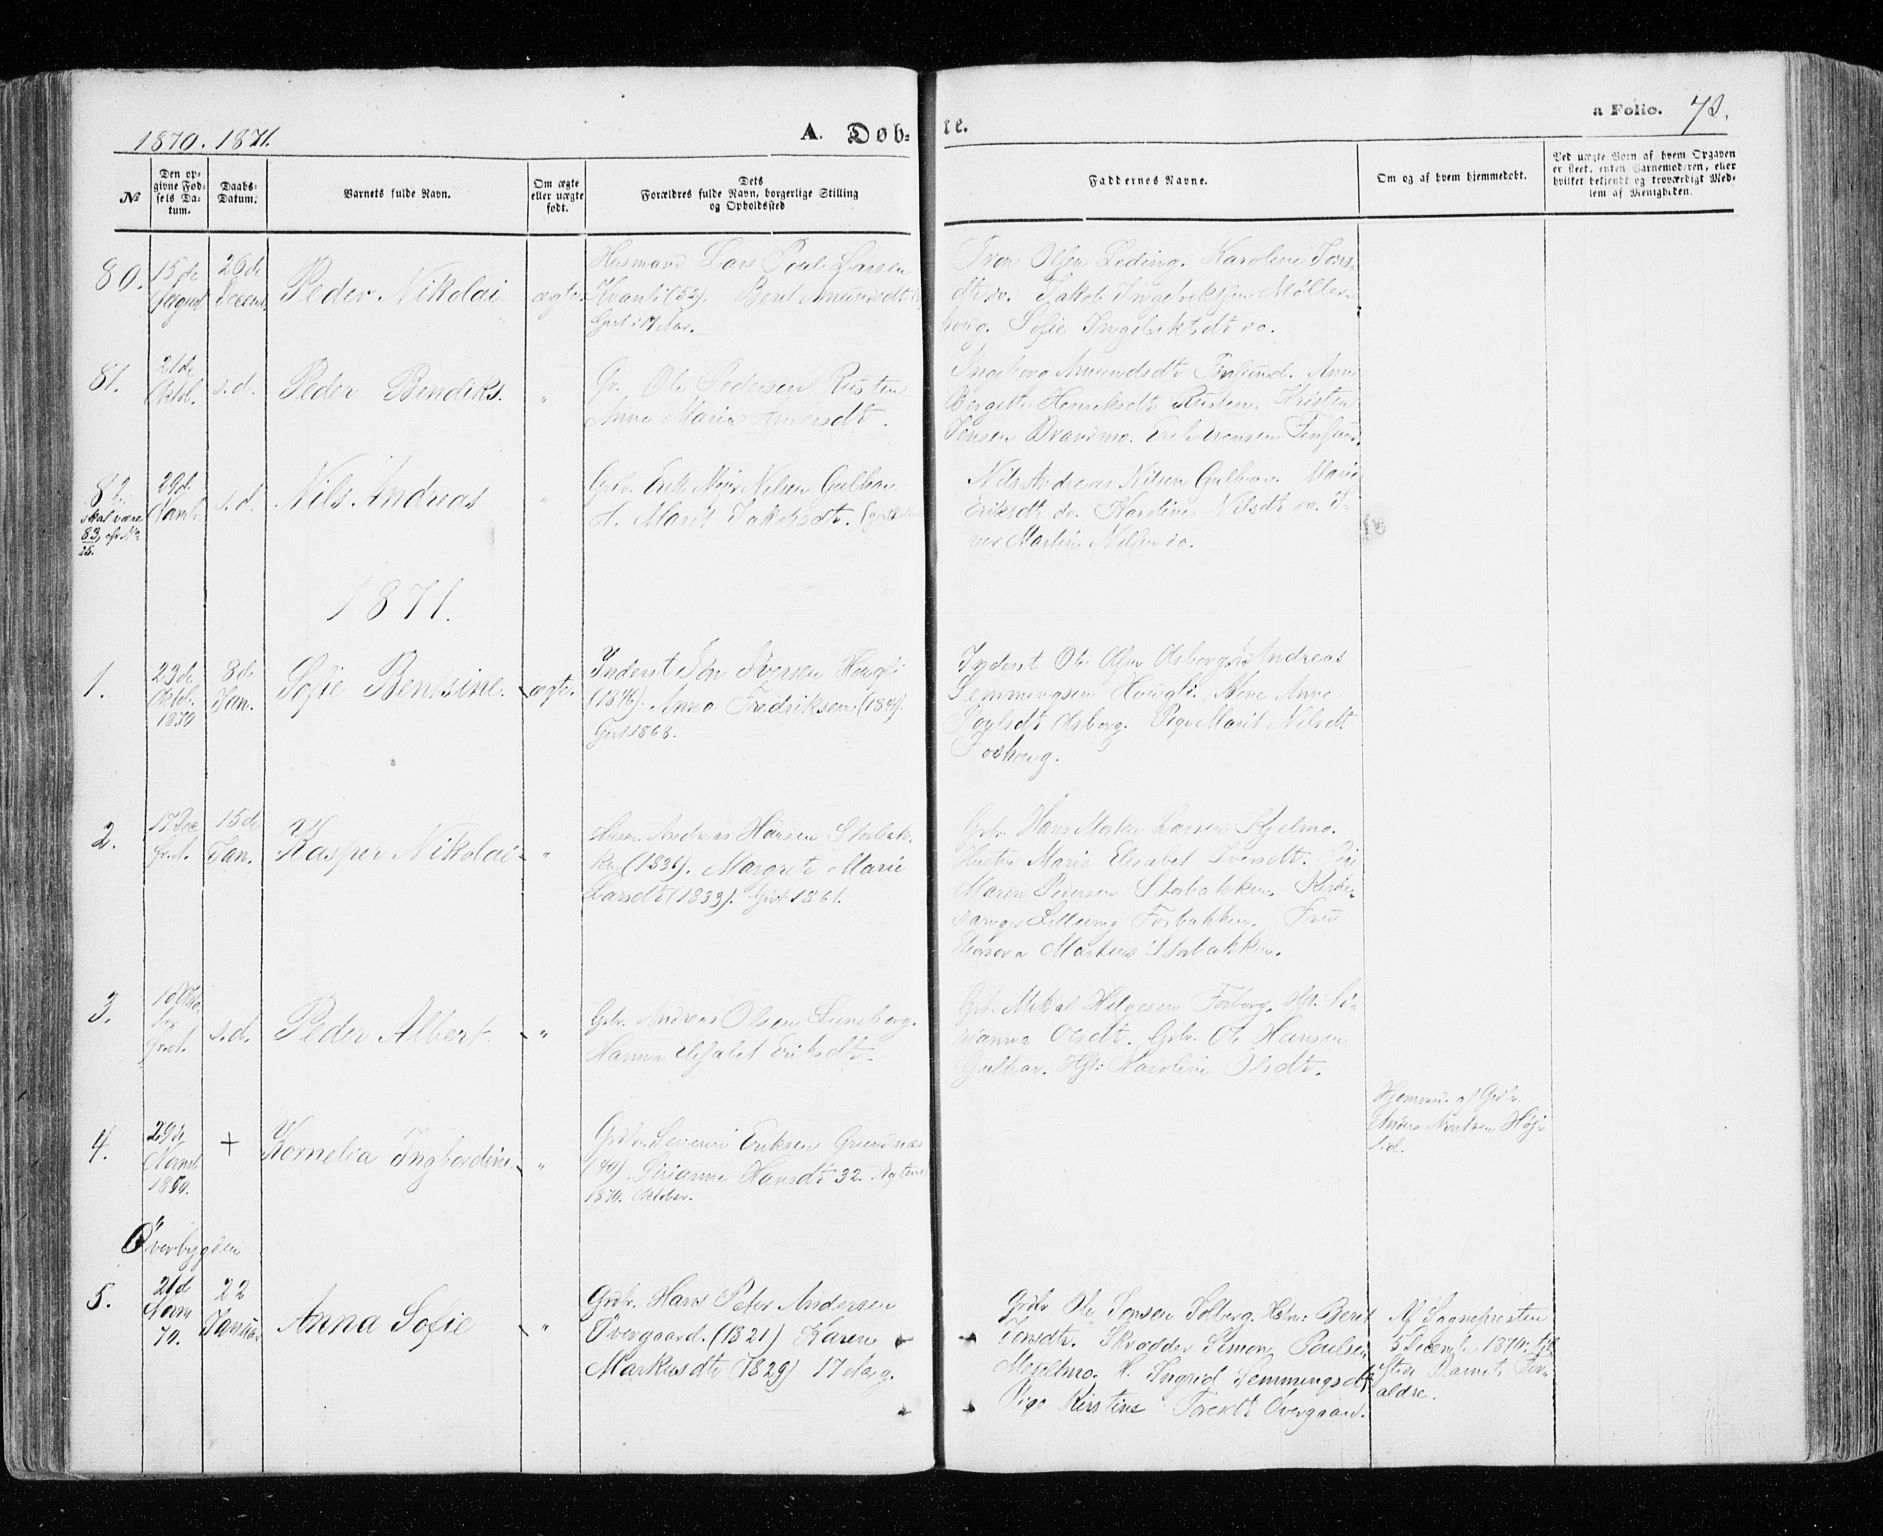 1870. 1871.
A. Døb-
te.
a Folio. 73.
№
Den op-
givne Fød-
sels Da-
tum.
Daabs-
Datum.
Barnets fulde Navn.
Om ægte
eller uægte
født.
Dets
Forældres fulde Navn, borgerlige Stilling
og Opholdssted
Faddernes Navne.
Om og af hvem hjemmedøbt.
Ved uægte Børn af hvem Opgaven
er skeet, enten Barnemoderen, eller
hvilket bekjendt og troværdigt Med-
lem af Menigheden.
80.
15de
August
26de
Decemb.
Peder Nikolai
ægte
Husmand Lars Poul Larsen
Kvanli (52). Berit Amundsdt
Gift 17 Aar.
Ingebrigtsen Møller-
haug. Sofie
do.
81.
21de
Oktob.
s.d.
Peder Bendiks.
"
Gr. Ole Pedersen Rusten
Anne Maria Andersdt.
Ingeborg Amundsdt Finsund. Anne
Birgitte Henriksdt Rusten. Kristen
Jensen Brandmo. Erik Iversen Finsund.
82.
skal være
83, efr No
25.
29d.
Novmb.
s.d.
Nils Andreas
"
Grbr. Erik Nilsen Gulhav
H. Marit Jakobsdt.
Nils Andreas Nilsen Gulhav. Marie
Eriksdt do. Karoline Nilsdt do. I-
ver Martin Nilsen do.
1871.
1.
23de
Oktob.
1870
8de
Jan.
Sofie Bentsine
ægte.
Inderst Jon Iversen Hougli
(1846). Anna Fredriksen (1841).
Gift 1868.
Inderst Ole Olsen Olsborg. Andreas
Lemmingsen Hougli. Kone Anne
Poulsdt Olsborg. Pige Marit Nilsdt
Foshoug.
2.
17 Dec
f.A.
15de
Jan.
Kasper Nikolai
"
Husm. Andreas Hansen Storbak-
ken (1836). Margrete Marie
Larsdt (1833). Gift 1861.
Grbr. Hans Morten Larsen Kjelmo.
Hustru Marie Elisabet Iversdt. Pige
Maren Pedersen Storbakken. Kirke-
sanger Fosbakken. Fru
Martens Storbakken.
3.
18 Okto-
ber
f.A.
s.d.
Peder Albert
"
Grbr. Andreas Olsen Luneborg.
Hanna Elisabet Eriksdt.
Grbr. Mikal Helgesen Fosborg. Hst. Si-
rianna Olsdt. Grbr. Ole Hansen
Gulhav. Hst: Karoline Olsdt.
4.
29de
Novmb.
1870.
+
Kornelia Ingbordine
"
Grbr. Severin Eriksen Grundnæs
(40). Sirianna Hansdt 32.
1870. Oktober.
Hjemme af Grbr.
Anders Høi-
lid.
Øverbygden
5.
21de
Novm
70.
22
Januar
Anna Sofie
"
Grdbr. Hans Peter Andersen
Øvergaard. (1821) Karen
Markusdt (1829) 17 Aar g.
Grdbr Ole Jonsen Solberg. Hstr: Berit
Jonsdt. Skrædder Simon Poulsen
Moselmo. H. Ingrid Lemmingsdt
Pige Kirstine Toresdt Øvergaard.
Af Sognepresten
5 Decemb. 1870.
efter Barnets For-
ældre.